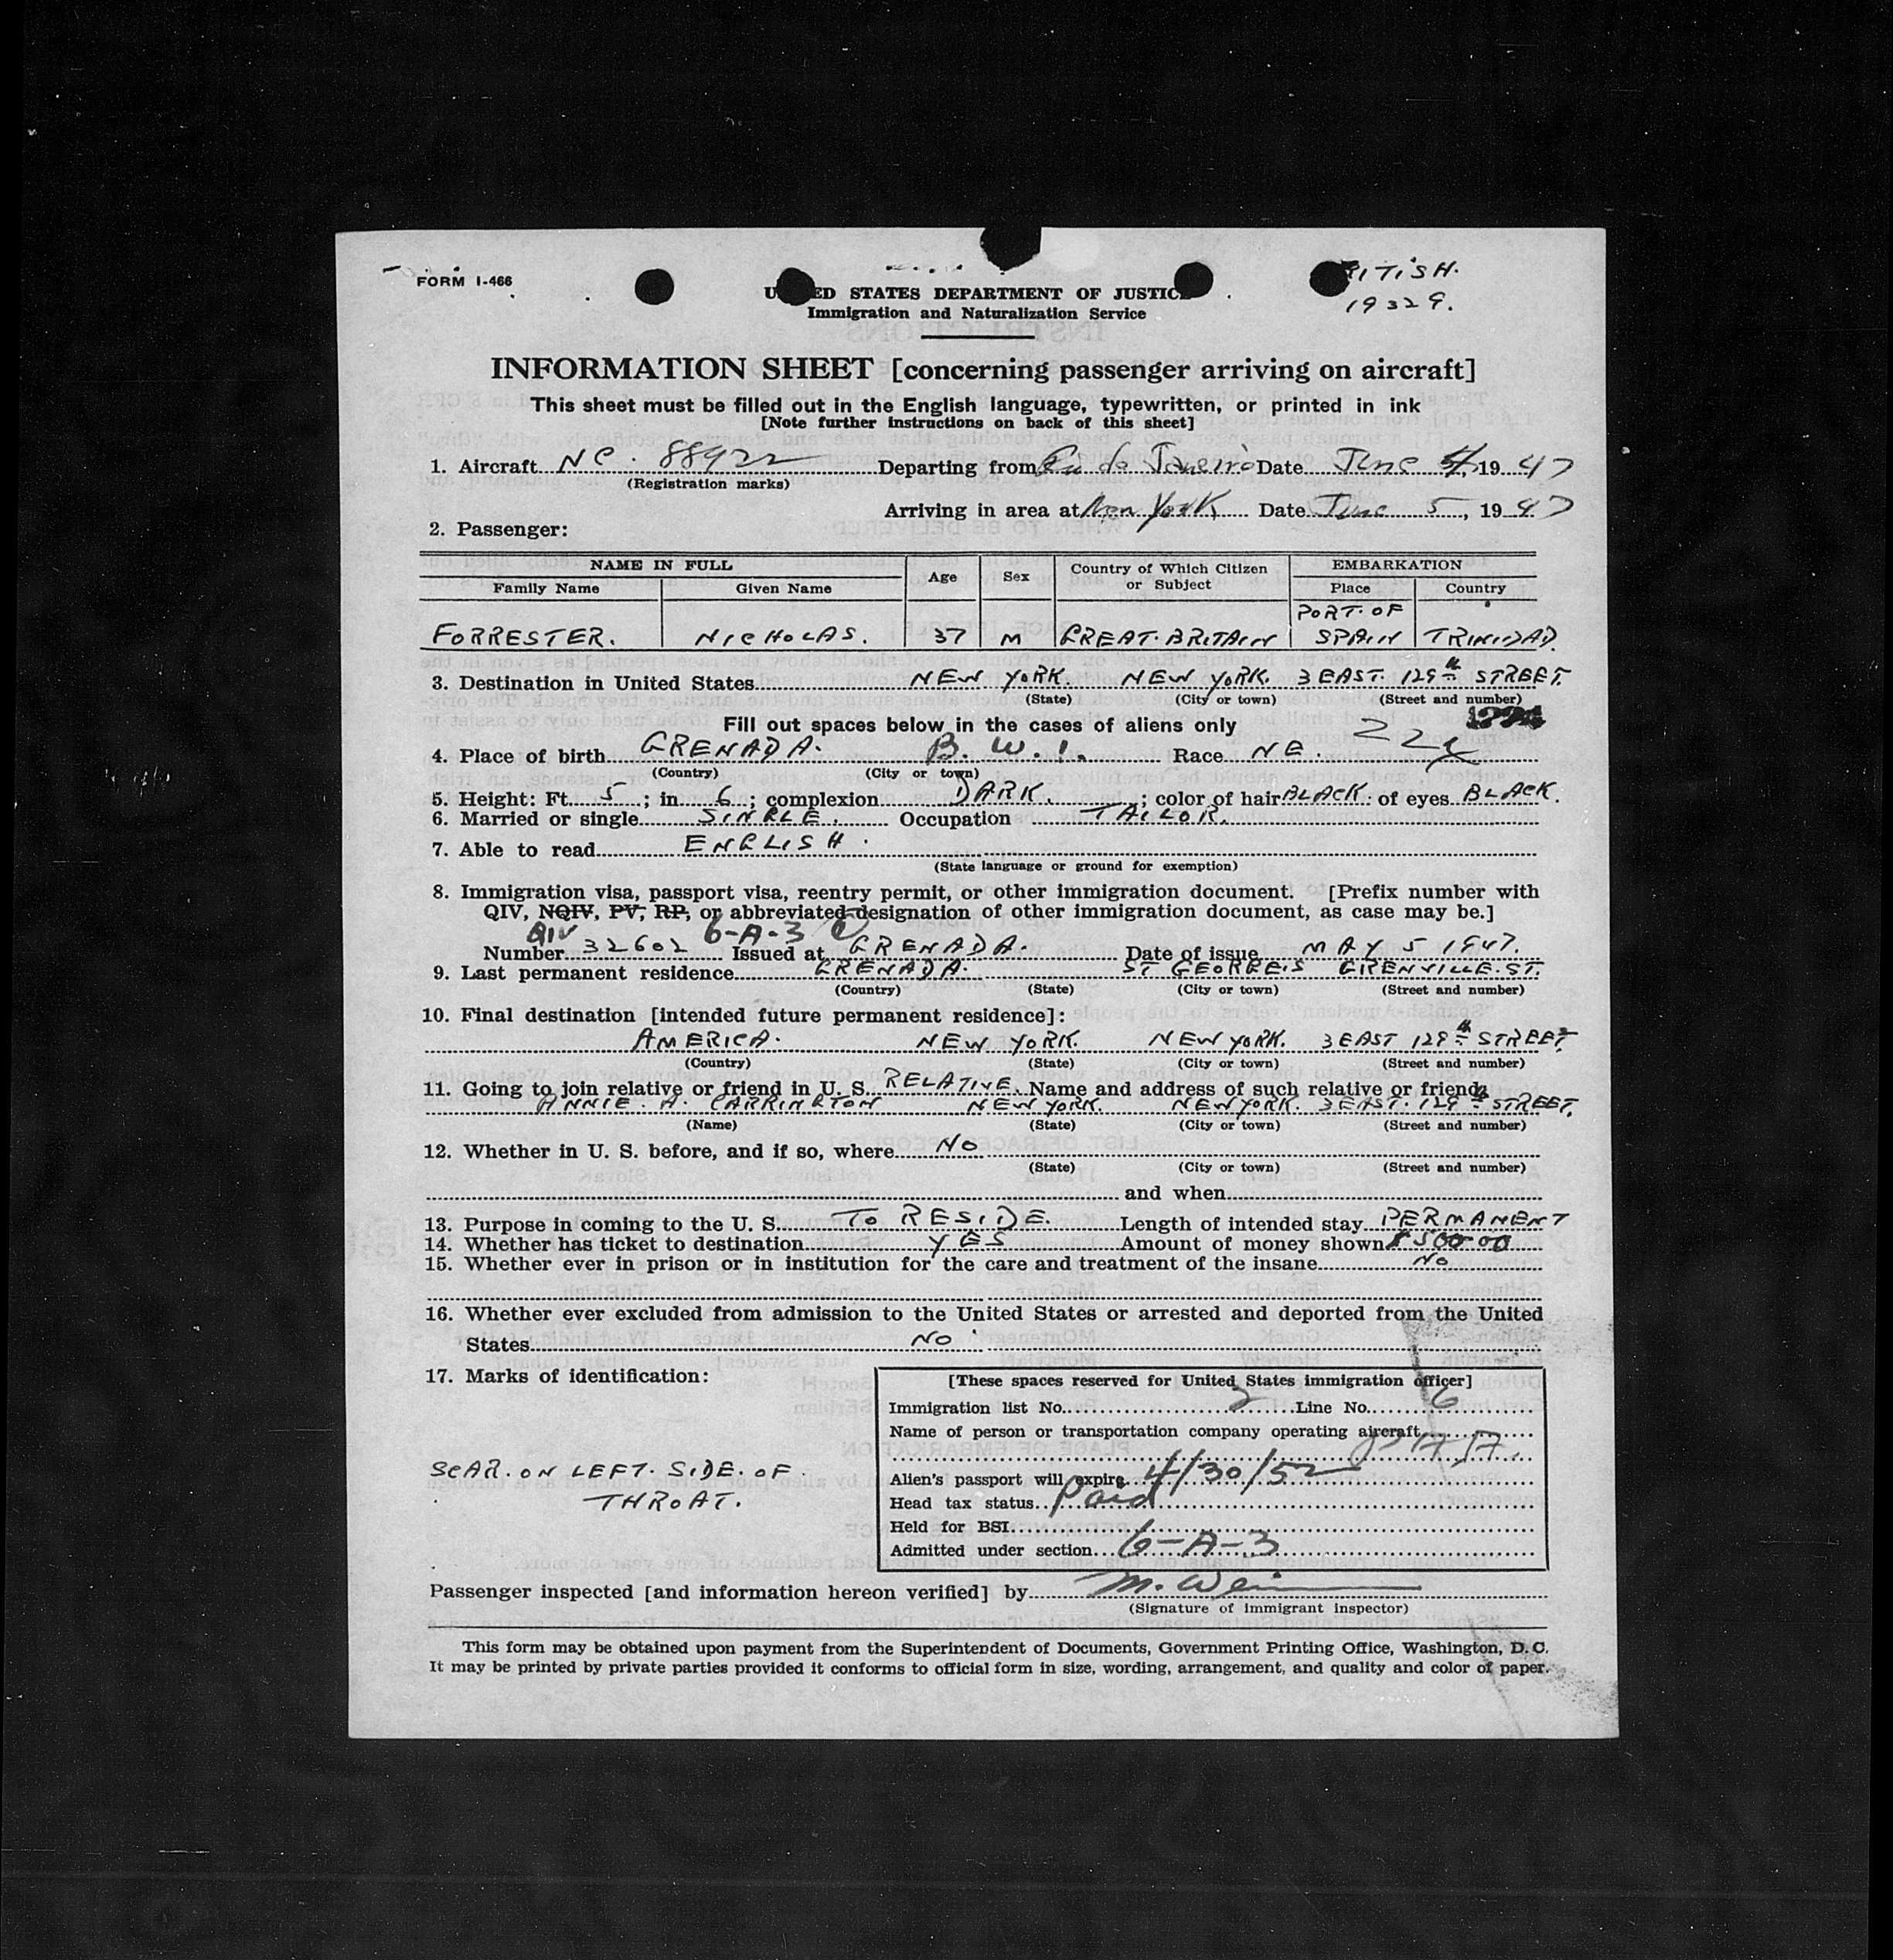 FORM I-466
RITISH.
19329.
U ED STATES DEPARTMENT OF JUSTIC
Immigration and Naturalization Service
INFORMATION SHEET [concerning passenger arriving on aircraft]
This sheet must be filled out in the English language, typewritten, or printed in ink
[Note further instructions on back of this sheet]
1. Aircraft NC. 88922 Departing from Rio de Janeiro Date June 4, 19 47
(Registration marks)
Arriving in area at New York Date June 5, 19 47
2. Passenger:
NAME IN FULL Age Sex Country of Which Citizen or Subject EMBARKATION
Family Name Given Name Place Country
FORRESTER. NICHOLAS. 37 M GREAT. BRITAIN PORT. OF SPAIN TRINIDAD.
3. Destination in United States NEW YORK. NEW YORK. 3 EAST. 129th STREET.
(State) (City or town) (Street and number)
Fill out spaces below in the cases of aliens only
4. Place of birth GRENADA. B. W. I. Race NE.
(Country) (City or town)
5. Height: Ft. 5; in 6; complexion DARK.; color of hair BLACK: of eyes BLACK.
6. Married or single SINGLE. Occupation TAILOR.
7. Able to read ENGLISH.
(State language or ground for exemption)
8. Immigration visa, passport visa, reentry permit, or other immigration document. [Prefix number with
QIV, NQIV, PV, RP, or abbreviated designation of other immigration document, as case may be.]
QIV 6-A-3
Number 32602 Issued at GRENADA. Date of issue MAY 5 1947.
9. Last permanent residence GRENADA. ST GEORGE'S GRENVILLE. ST.
(Country) (State) (City or town) (Street and number)
10. Final destination [intended future permanent residence]:
AMERICA. NEW YORK. NEW YORK. 3 EAST 129th STREET
(Country) (State) (City or town) (Street and number)
11. Going to join relative or friend in U. S. RELATIVE. Name and address of such relative or friend:
ANNIE. A. CARRINGTON NEW YORK. NEW YORK. 3 EAST. 129th STREET.
(Name) (State) (City or town) (Street and number)
12. Whether in U. S. before, and if so, where NO
(State) (City or town) (Street and number)
and when
13. Purpose in coming to the U. S. TO RESIDE. Length of intended stay PERMANENT
14. Whether has ticket to destination YES Amount of money shown $500.00
15. Whether ever in prison or in institution for the care and treatment of the insane NO
16. Whether ever excluded from admission to the United States or arrested and deported from the United
States NO
17. Marks of identification:
SCAR. ON LEFT. SIDE. OF
THROAT.
[These spaces reserved for United States immigration officer]
Immigration list No. 2 Line No. 6
Name of person or transportation company operating aircraft
Alien's passport will expire 4/30/52
Head tax status Paid
Held for BSI
Admitted under section 6-A-3
Passenger inspected [and information hereon verified] by
(Signature of immigrant inspector)
This form may be obtained upon payment from the Superintendent of Documents, Government Printing Office, Washington, D. C.
It may be printed by private parties provided it conforms to official form in size, wording, arrangement, and quality and color of paper.